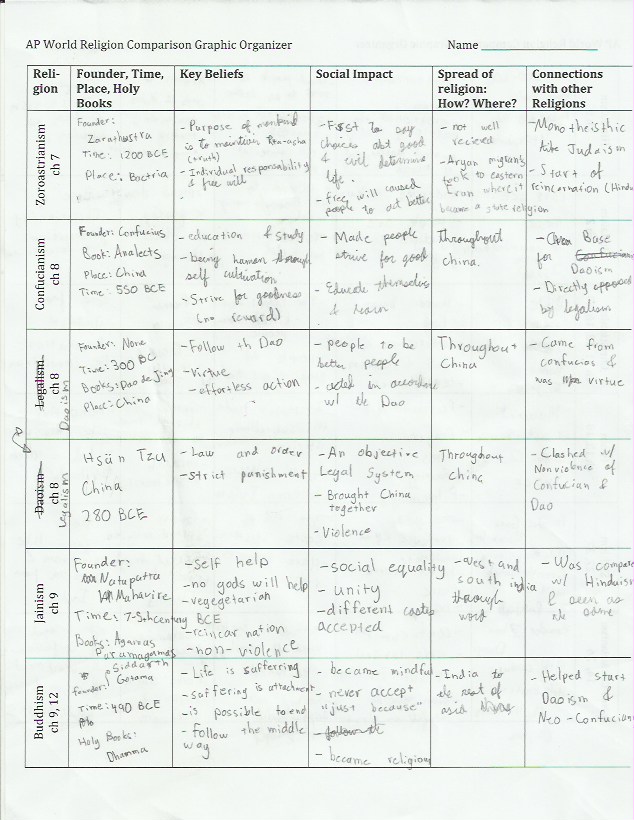 AP World Religion Comparison Graphic Organizer Name
Reli-
gion
Founder, Time,
Place, Holy
Books
Key Beliefs
Social Impact
Spread of
religion:
How? Where?
Connections
with other
Religions
Zoroastrianism
ch 7
Founder:
Zarathustra
Time: 1200 BCE
Place: Bactria
- Purpose of mankind
is to maintain
(truth)
- Individual responsibility
& free will
- First to say
choices abt good
& evil determine
life.
- free will caused
people to act better
- not well
recieved
- Aryan migrants
took to eastern
Iran where it
became a state religion
- Monotheisthic
like Judaism
- Start of
reincarnation (Hindu
Confucianism
ch 8
Founder: Confucius
Book: Analects
Place: China
Time: 550 BCE
- education & study
- being human through
self cultivation
- Strive for goodness
(no reward)
- Made people
strive for good
- Educate themselves
& learn
Throughout
china.
- Base
for Confucianism
Daoism
- Directly opposed
by legalism
Legalism
ch 8
Daoism
Founder: None
Time: 300 BC
Books: Dao de Jing
Place: China
- Follow th Dao
- Virtue
- effortless action
- people to be
better people
- acted in accordance
w/ the Dao
Throughout
China
- Came from
confucios &
was virtue
Daoism
ch 8
Legalism
Hsün Tzu
China
280 BCE
- Law and order
- Strict punishment
- An objective
Legal System
- Brought China
together
- Violence
Throughout
china
- Clashed w/
Nonviolence of
Confucian &
Dao
Jainism
ch 9
Founder:
Nataputta
Mahavire
Time: 7-5th century BCE
Books: Agamas
Paramagamas
- self help
- no gods will help
- vegegetarian
- reincarnation
- non-violence
- social equality
- unity
- different castes
accepted
- west and
south india
through
word
- Was compare
w/ Hinduism
& seen as
the same
Buddhism
ch 9, 12
Siddarth
Founder: Gotama
Time: 490 BCE
Holy Books:
Dhamma
- Life is suffering
- suffering is attachment
- is possible to end
- Follow the middle
way
- became mindful
- never accept
"just because"
- follow th
- became religion
- India to
the rest of
asia
- Helped start
Daoism &
Neo-Confucian